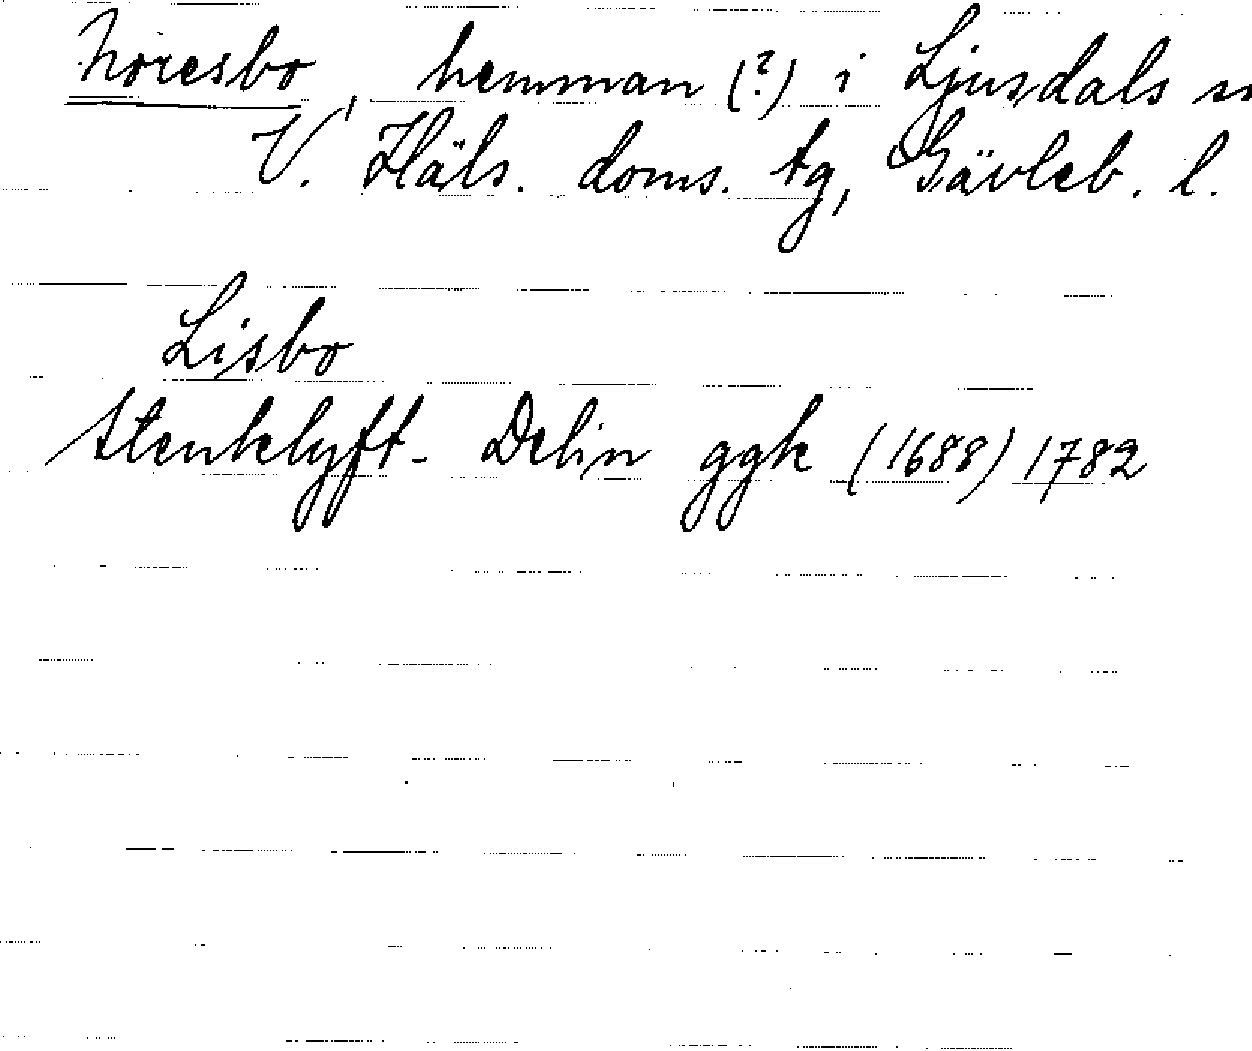 Noresbo, hemman (?) i Ljusdals sn
V. Häls. doms. tg, Gävleb. l.
Lisbo
Stenklyft- Delin ggk (1688) 1782